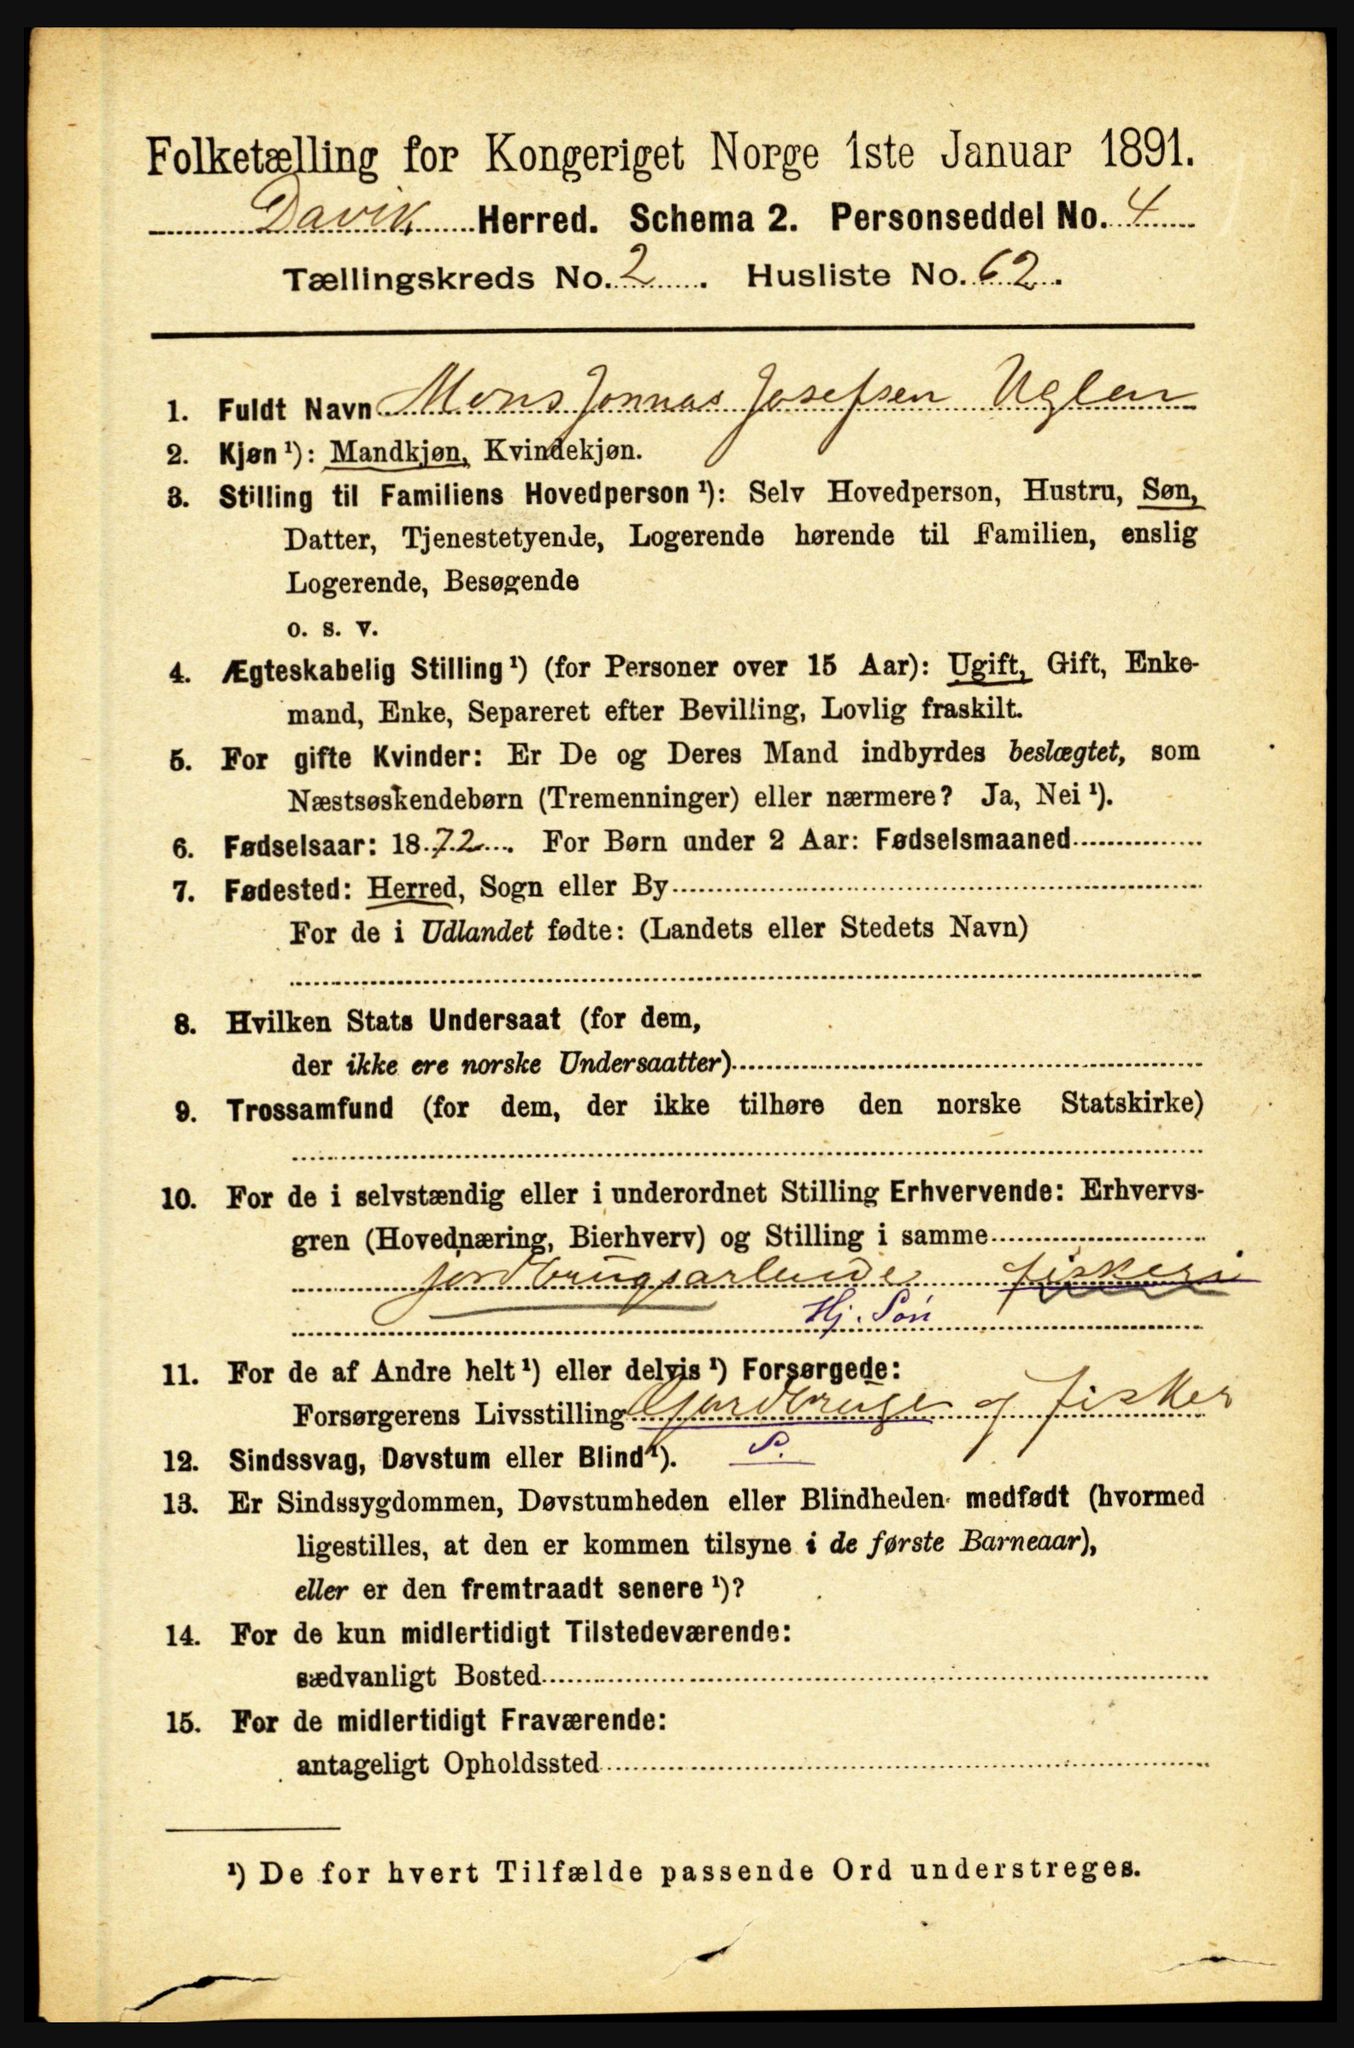 Folketælling for Kongeriget Norge 1ste Januar 1891.
Davik Herred. Schema 2. Personseddel No. 4
Tællingskreds No. 2. Husliste No. 62.
1. Fuldt Navn Mons Jonnas Josefsen Uglen
2. Kjøn¹): Mandkjøn, Kvindekjøn.
3. Stilling til Familiens Hovedperson¹): Selv Hovedperson, Hustru, Søn,
Datter, Tjenestetyende, Logerende hørende til Familien, enslig
Logerende, Besøgende
o. s. v.
4. Ægteskabelig Stilling¹) (for Personer over 15 Aar): Ugift, Gift, Enke-
mand, Enke, Separeret efter Bevilling, Lovlig fraskilt.
5. For gifte Kvinder: Er De og Deres Mand indbyrdes beslægtet, som
Næstsøskendebørn (Tremenninger) eller nærmere? Ja, Nei¹).
6. Fødselsaar: 1872. For Børn under 2 Aar: Fødselsmaaned
7. Fødested: Herred, Sogn eller By
For de i Udlandet fødte: (Landets eller Stedets Navn)
8. Hvilken Stats Undersaat (for dem,
der ikke ere norske Undersaatter)
9. Trossamfund (for dem, der ikke tilhøre den norske Statskirke)
10. For de i selvstændig eller i underordnet Stilling Erhvervende: Erhvervs-
gren (Hovednæring, Bierhverv) og Stilling i samme
jordbrugsarbeide fiskeri
Hj. Søn
11. For de af Andre helt¹) eller delvis¹) Forsørgede:
Forsørgerens Livsstilling Gjordbruge og fisker
12. Sindssvag, Døvstum eller Blind¹). S.
13. Er Sindssygdommen, Døvstumheden eller Blindheden medfødt (hvormed
ligestilles, at den er kommen tilsyne i de første Barneaar),
eller er den fremtraadt senere¹)?
14. For de kun midlertidigt Tilstedeværende:
sædvanligt Bosted
15. For de midlertidigt Fraværende:
antageligt Opholdssted
¹) De for hvert Tilfælde passende Ord understreges.